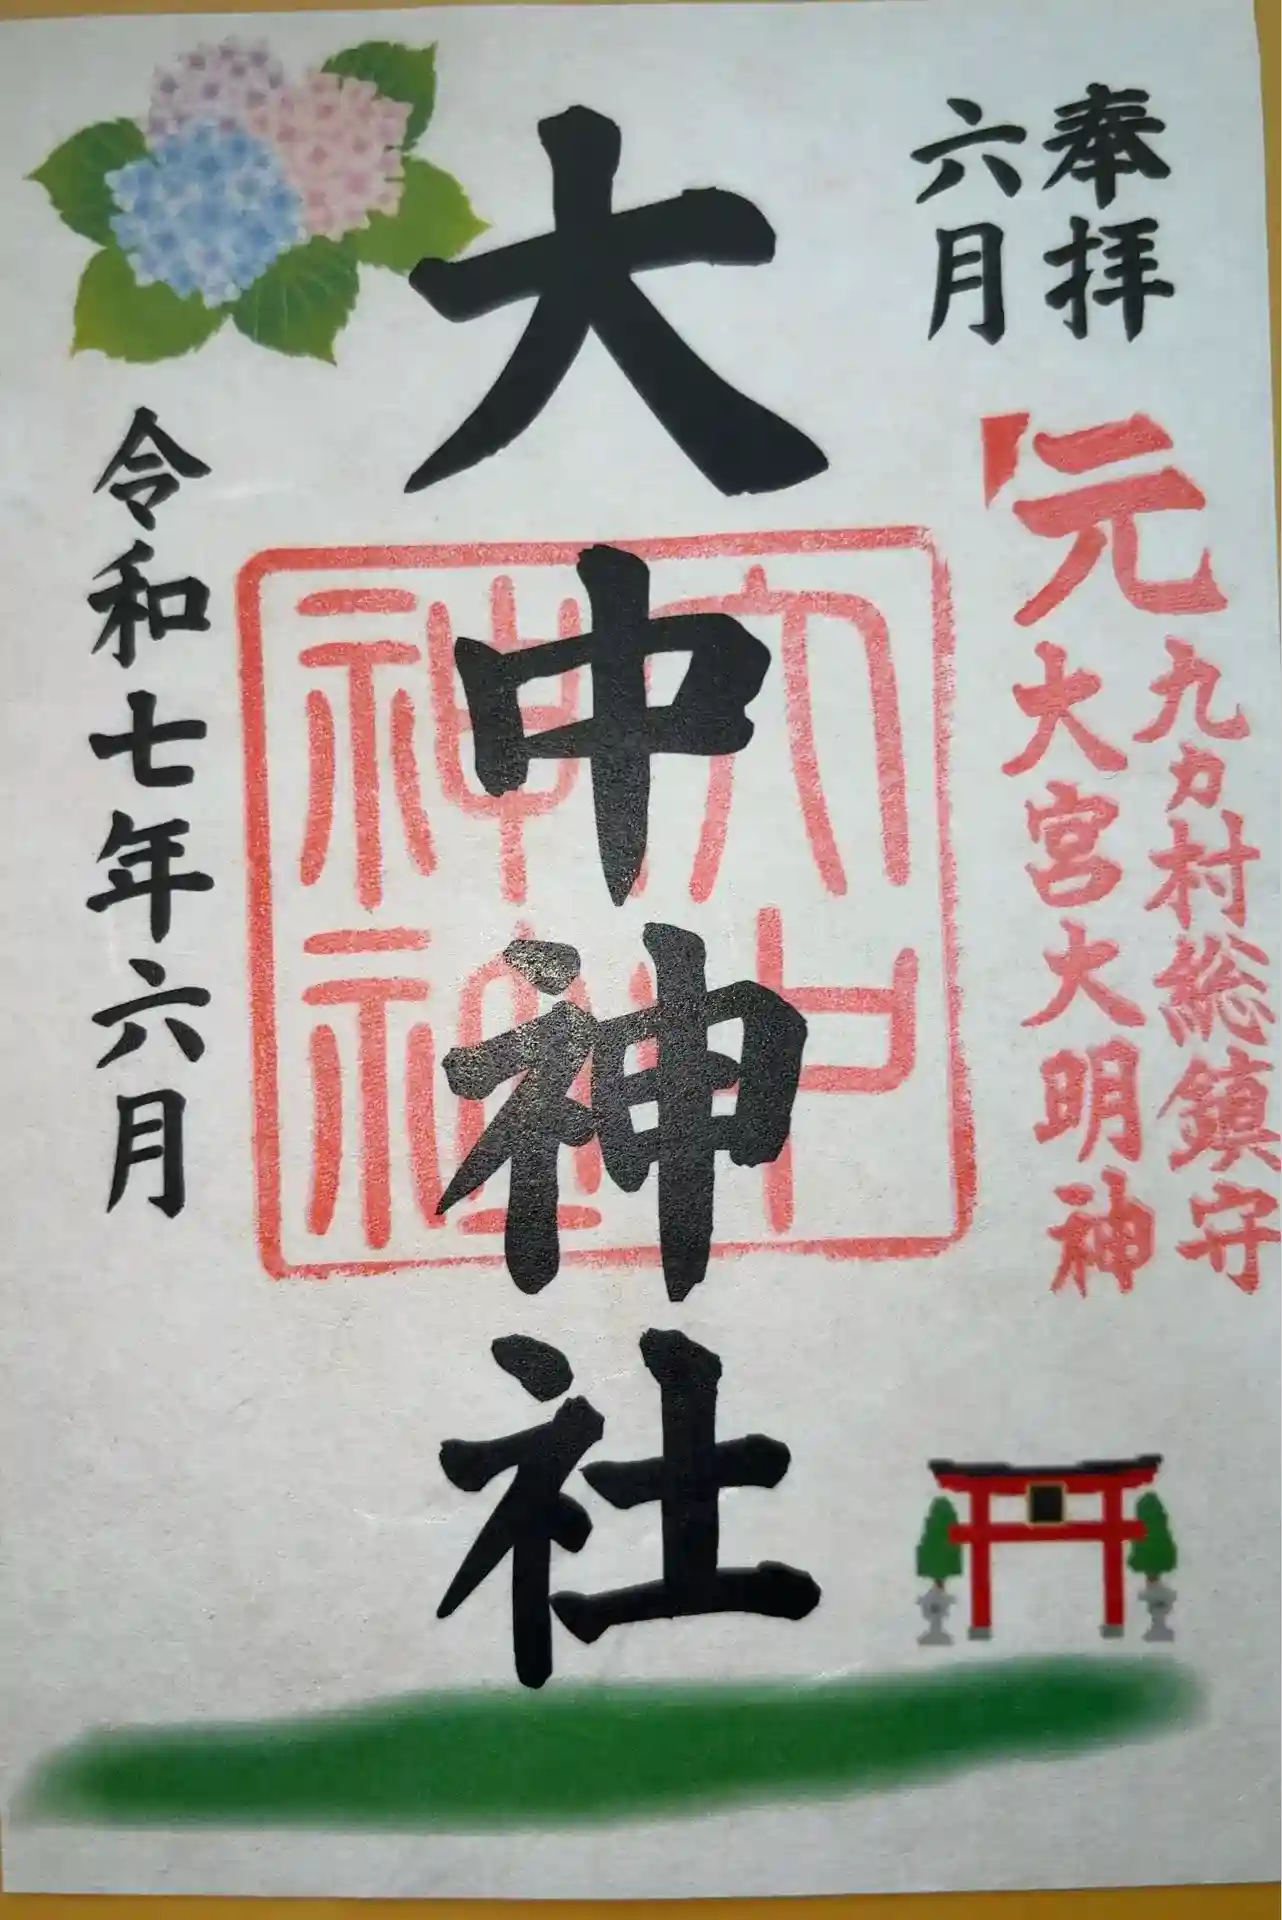 奉拝
六月
元
九カ村総鎮守
大宮大明神
大中神社
大中
神社
令和七年六月